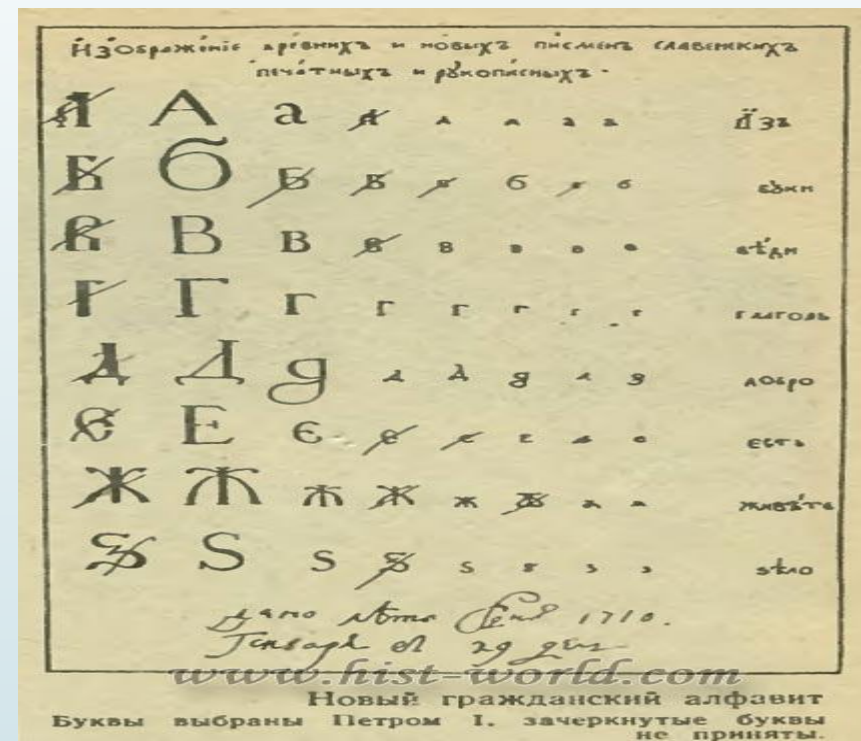 Изображе́нїе дре́внихъ и но́выхъ пи́сменъ славе́нскихъ
печа́тныхъ и рꙋкопи́сныхъ.
А А а а а а а а а́зъ
Б б Б Б б б б б бꙋ́ки
В В в в в в в в вѣ́ди
Г Г г г г г г г глаго́ль
Д Д д д д д д д добро
Е Е є е е е е е есть
Ж Ж ж ж ж ж ж ж живѣ́те
Ѕ Ѕ ѕ ѕ ѕ ѕ ѕ ѕ ѕѣло
Дано лѣта 1710.
Генваря 29 дня
www.hist-world.com
Новый гражданский алфавит
Буквы выбраны Петром I, зачеркнутые буквы
не приняты.